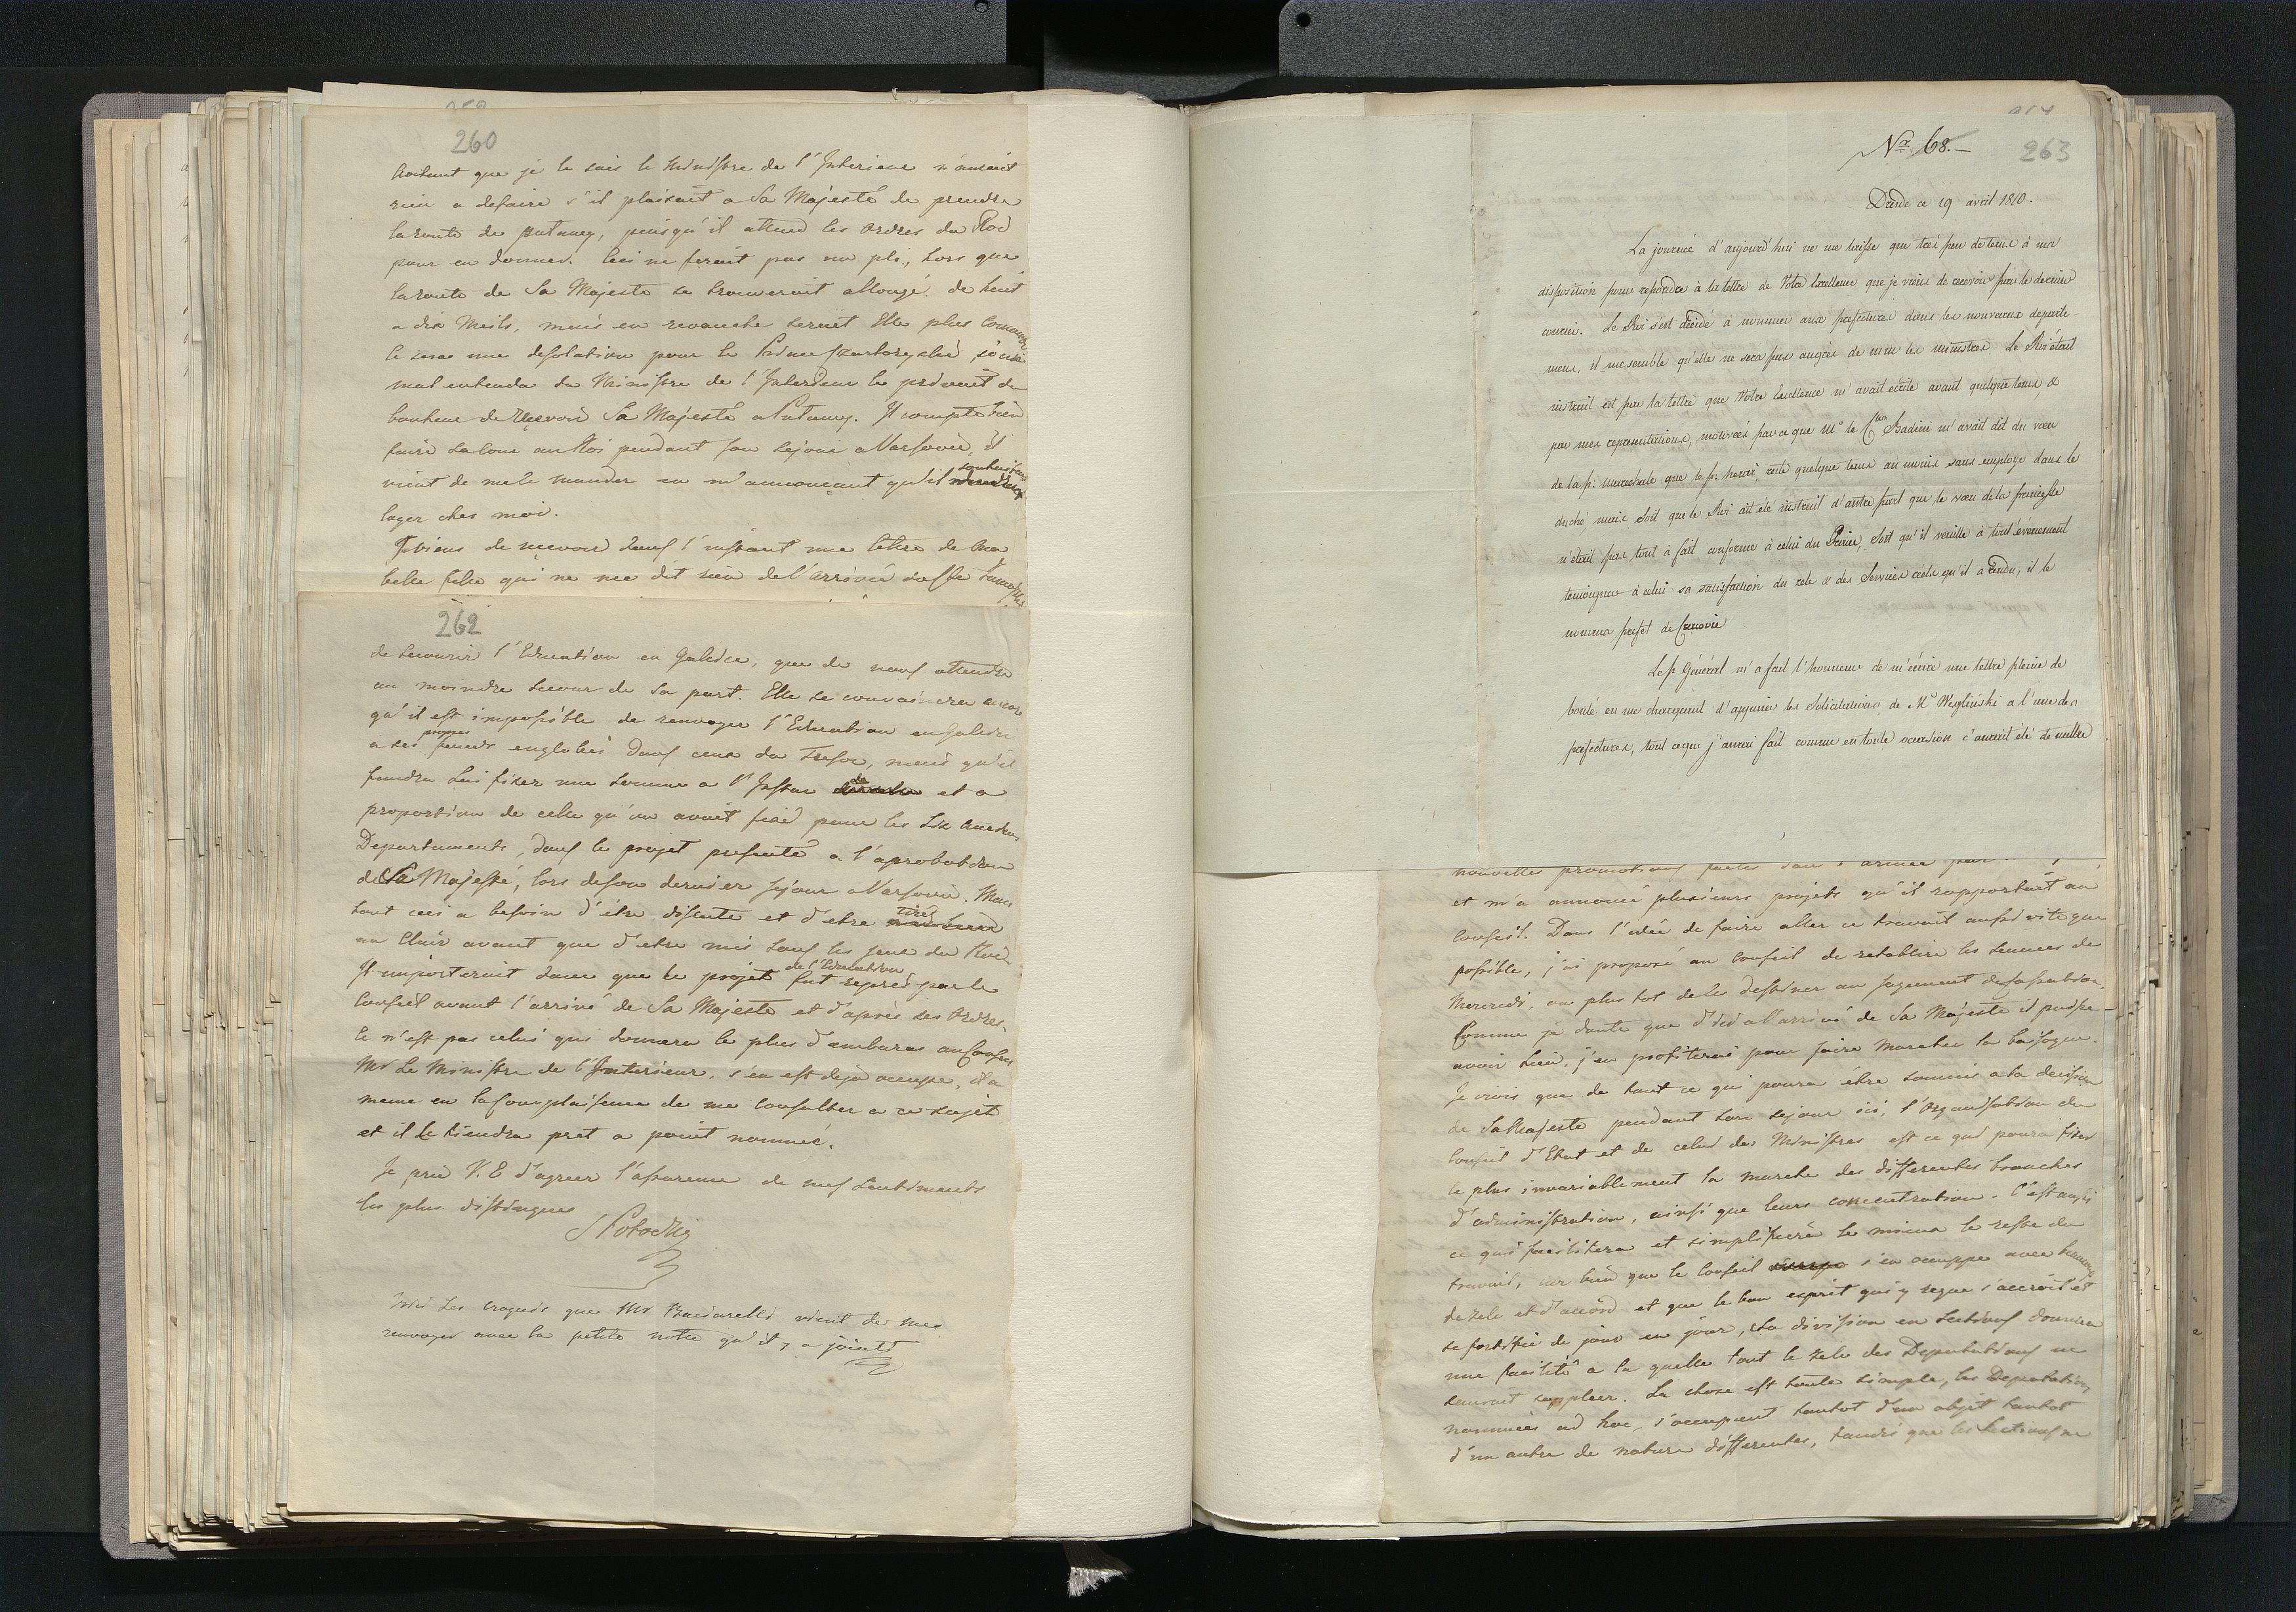 260
Autant que je le sais le Ministre de l'Interieur n'aurait
rien a defaire s'il plaisait a Sa Majesté de prendre
la route de putawy, puisqu'il attend les Ordres du Roi
pour en donner. Ceci ne ferait pas un pli, hors que
la route de Sa Majesté se trouveroit allongé de huit
a dix Meils, mais en revanche seroit Elle plus commode
ce sera une desolation pour le Prince Czartoryski si un
mal entendu du Ministre de l'Interieur le privait du
bonheur de reçevoir Sa Majesté a Putawy. Il compte bien
faire sa cour au Roi pendant son sejour a Varsovie, il
vient de me le mander en m'annonçant qu'il souhaite
loger ches moi.
Je viens de reçevoir dans l'instant une lettre de ma
belle fille qui ne me dit rien de l'arrivée
262
de secourir l'Education en Galicie, que de nous attendre
au moindre secour de Sa part. Elle se convaincra encore
qu'il est impossible de renvoyer l'Education en Galicie
a ses propres fonds englobés dans ceux du Tresor, mais qu'il
faudra lui fixer une somme a l'Instar de et a
proportion de celle qu'on avait fixé pour les six anciens
Departements, dans le projet presenté a l'aprobation
de Sa Majesté, lors de son dernier sejour a Varsovie. Mais
tout ceci a besoin d'être discuté et d'etre tiré
au Clair avant que d'etre mis sous les yeux du Roi.
Il importeroit donc que le projet de l'Education fut repris par le
Conseil avant l'arrivé de Sa Majesté et d'après ses Ordres.
Ce n'est pas celui qui donnera le plus d'embaras au Conseil
Mr Le Ministre de l'Interieur, s'en est deja occupé, il a
meme eu la Complaisance de me Consulter a ce sujet
et il le tiendra pret a point nommé.
Je prie V. E d'agreer l'assurance de mes sentiments
les plus distingués
S Potocki
Voici les croquis que Mr Bacciarelli vient de me
renvoyer avec la petite notte qu'il y a joint
No. 68.
263
Dresde ce 19 avril 1810.
La journée d'aujourd'hui ne me laisse que très peu de tems à ma
disposition pour repondre à la lettre de Votre Excellence que je viens de recevoir par le dernier
courier. Le Roi s'est decidé à nommer aux prefectures dans les nouveaux departe-
mens, il me semble qu'elle ne sera pas augrès de tous les ministres. Le Roi était
instruit et par la lettre que Votre Excellence m'avait ecrite avant quelque tems, &
par mes representations, motivées par ce que Mr le Cte Badini m'avait dit du vœu
de la p: marechale que le p: henri, reste quelque tems au moins sans employe dans le
duché mais soit que le Roi ait été instruit d'autre part que le vœu de la princesse
n'était pas tout à fait conforme à celui du Prince, soit qu'il veuille à tout evenement
temoigner à celui sa satisfaction du zele & des Services reels qu'il a rendu, il le
nomma prefet de Cracovie
Le p: Général m'a fait l'honneur de m'écrire une lettre pleine de
bonté en me chargeant d'appuier les Solicitations de Mr Węgliński a l'une des
prefectures, tout ce que j'aurai fait comme en toute occasion c'aurait été de mettre
nouvelles promotions faites dans l'armée
et m'a annoncé plusieurs projets qu'il rapportait au
Conseil. Dans l'idée de faire aller ce travail aussi vite que
possible, j'ai proposé au Conseil de retablire les seances de
Mercredi, ou plus tot de les destiner au jugement de Cassation.
Comme je doute que d'ici a l'arrivé de Sa Majesté il puisse
avoir lieu, j'en profiterai pour faire marcher la besogne.
Je crois que de tout ce qui poura être soumis a la decision
de Sa Majesté pendant son sejour ici, l'Organisation du
Conseil d'Etat et de celui des Ministres est ce qui poura fixer
le plus invariablement la marche des differentes branches
d'administration, ainsi que leurs concentration. C'est aussi
ce qui facilitera et simplifiera le mieux le reste du
travail, car bien que le Conseil s'en occuppe avec beaucoup
de zele et d'accord et que le bon esprit qui y regne s'accroit et
se fortifie de jour en jour, la division en Sections donnera
une facilité a la quelle tout le zele des Deputations ne
sauroit suppleer. La chose est toute simple, les Deputations
nommées ad hoc, s'occupent tantot d'un objet tantot
d'un autre de nature differentes, tandis que les Sections ne